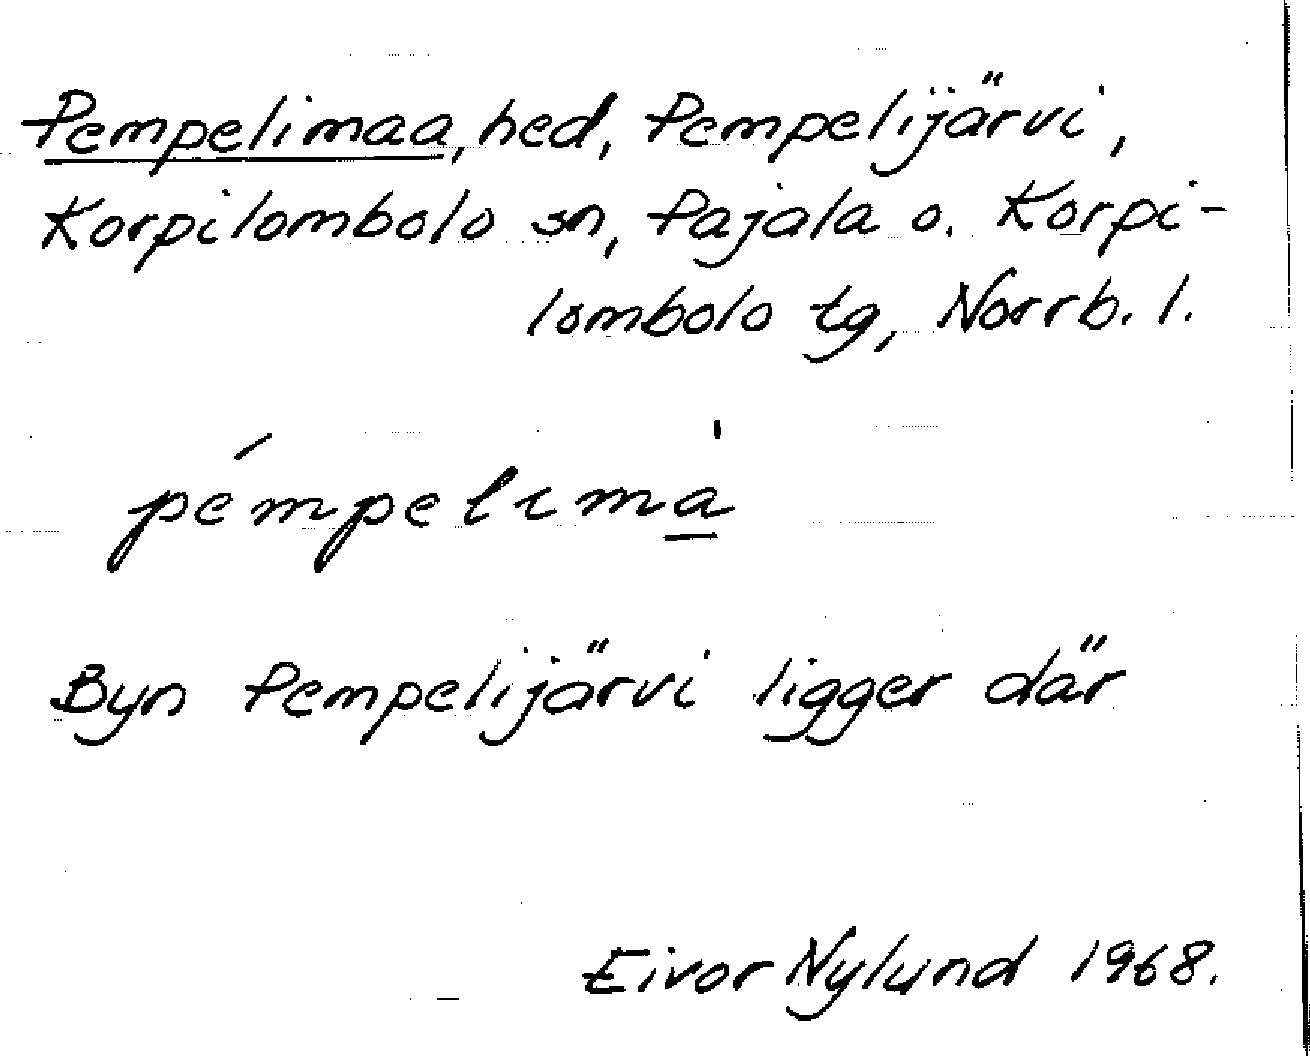 Pempelimaa, hed, Pempelijärvi,
Korpilombolo sn, Pajala o. Korpi-
lombolo tg, Norrb. l.
pémpelımà̱
Byn Pempelijärvi ligger där
Eivor Nylund 1968.